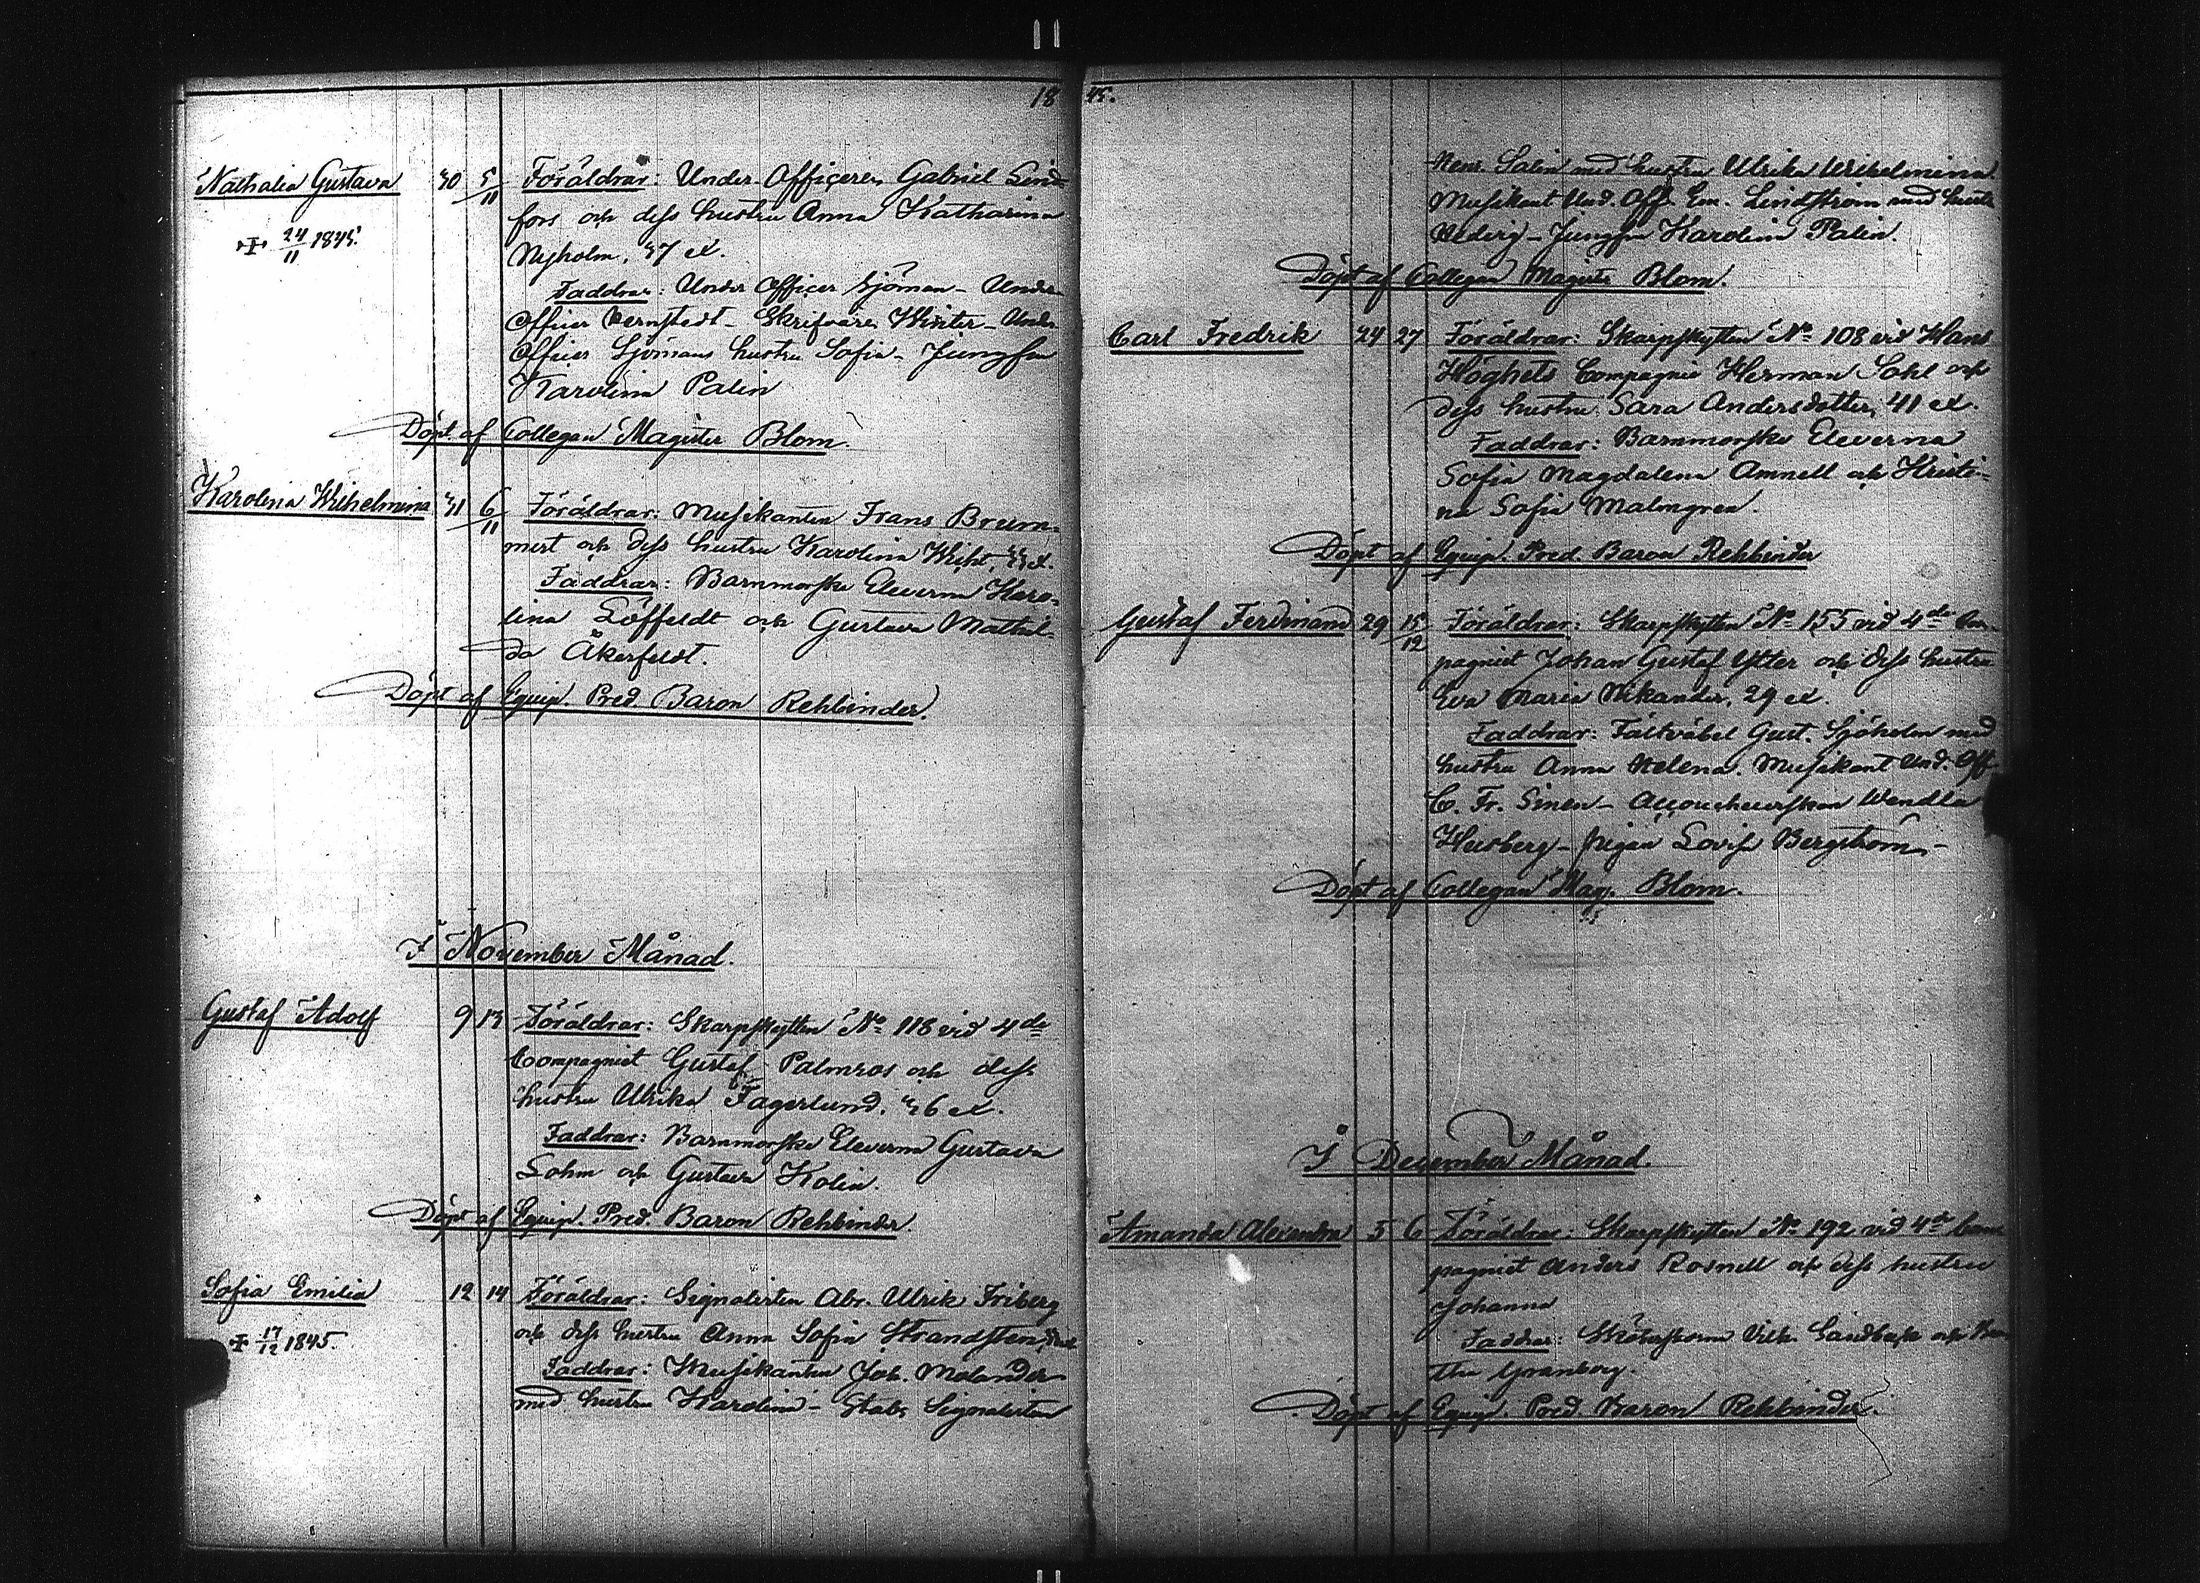 1845.
Nathalia Gustava 30 5/11 Föräldrar: Under Officeren Gabriel Lind-
fors och dess hustru Anna Katharina
+ 24/11 1845.
Nyholm, 37 år.
Faddrar: Under Officer Sjöman – Under
Officer Pernstedt – Skrifvare Winter – Under
Officer Sjömans hustru Sofia – Jungfru
Karolina Palin
Döpt af Collegan Magister Blom.
Karolina Wilhelmina 31 6/11 Föräldrar: Musikanten Frans Brum-
mert och dess hustru Karolina Wicht, 33 år.
Faddrar: Barnmorske Eleverna Karo-
lina Löffeldt och Gustava Mathil-
da Åkerfeldt.
Döpt af Equip. Pred. Baron Rehbinder.
I November Månad.
Gustaf Adolf 9 13 Föräldrar: Skarpskytten No 118 vid 4de
Compagniet Gustaf Palmros och dess
hustru Ulrika Fagerlund, 36 år.
Faddrar: Barnmorske Eleverna Gustava
Lohm och Gustava Kolin.
Döpt af Equip. Pred. Baron Rehbinder.
Sofia Emilia 12 14 Föräldrar: Signalisten Abr. Ulrik Friberg
+ 17/12 1845.
och dess hustru Anna Sofia Strandsten,
Faddrar: Musikanten Joh. Molander
med hustru Karolina – Stabs Signalisten
Henr. Salin med hustru Ulrika Wilhelmina
Musikant Und. Off. Em. Lindström med hustru
Hedvig – Jungfru Karolina Palin.
Döpt af Collegan Magister Blom.
Carl Fredrik 24 27 Föräldrar: Skarpskytten No 108 vid Hans
Höghets Compagnie Herman Sahl och
dess hustru Sara Andersdotter, 41 år.
Faddrar: Barnmorske Eleverna
Sofia Magdalena Amnell och Kristi-
na Sofia Malmgren.
Döpt af Equip. Pred. Baron Rehbinder
Gustaf Ferdinand 29 15/12 Föräldrar: Skarpskytten No 155 vid 4de Com-
pagniet Johan Gustaf Ytter och dess hustru
Eva Maria Nikander, 29 år.
Faddrar: Fältväbel Gust. Sjöholm med
hustru Anna Helena. Musikant Und. Off.
C. Fr. Sinen – Accoucheurskan Wendla
Husberg – pigan Lovisa Bergström –
Döpt af Collegan Mag. Blom.
I December Månad.
Amanda Alexandra 5 6 Föräldrar: Skarpskytten No 192 vid 4de Com-
pagniet Anders Rosnell och dess hustru
Johanna
Faddrar: Sköterskorna Vilh. Sandbäck och
Granberg.
Döpt af Equip. Pred. Baron Rehbinder.